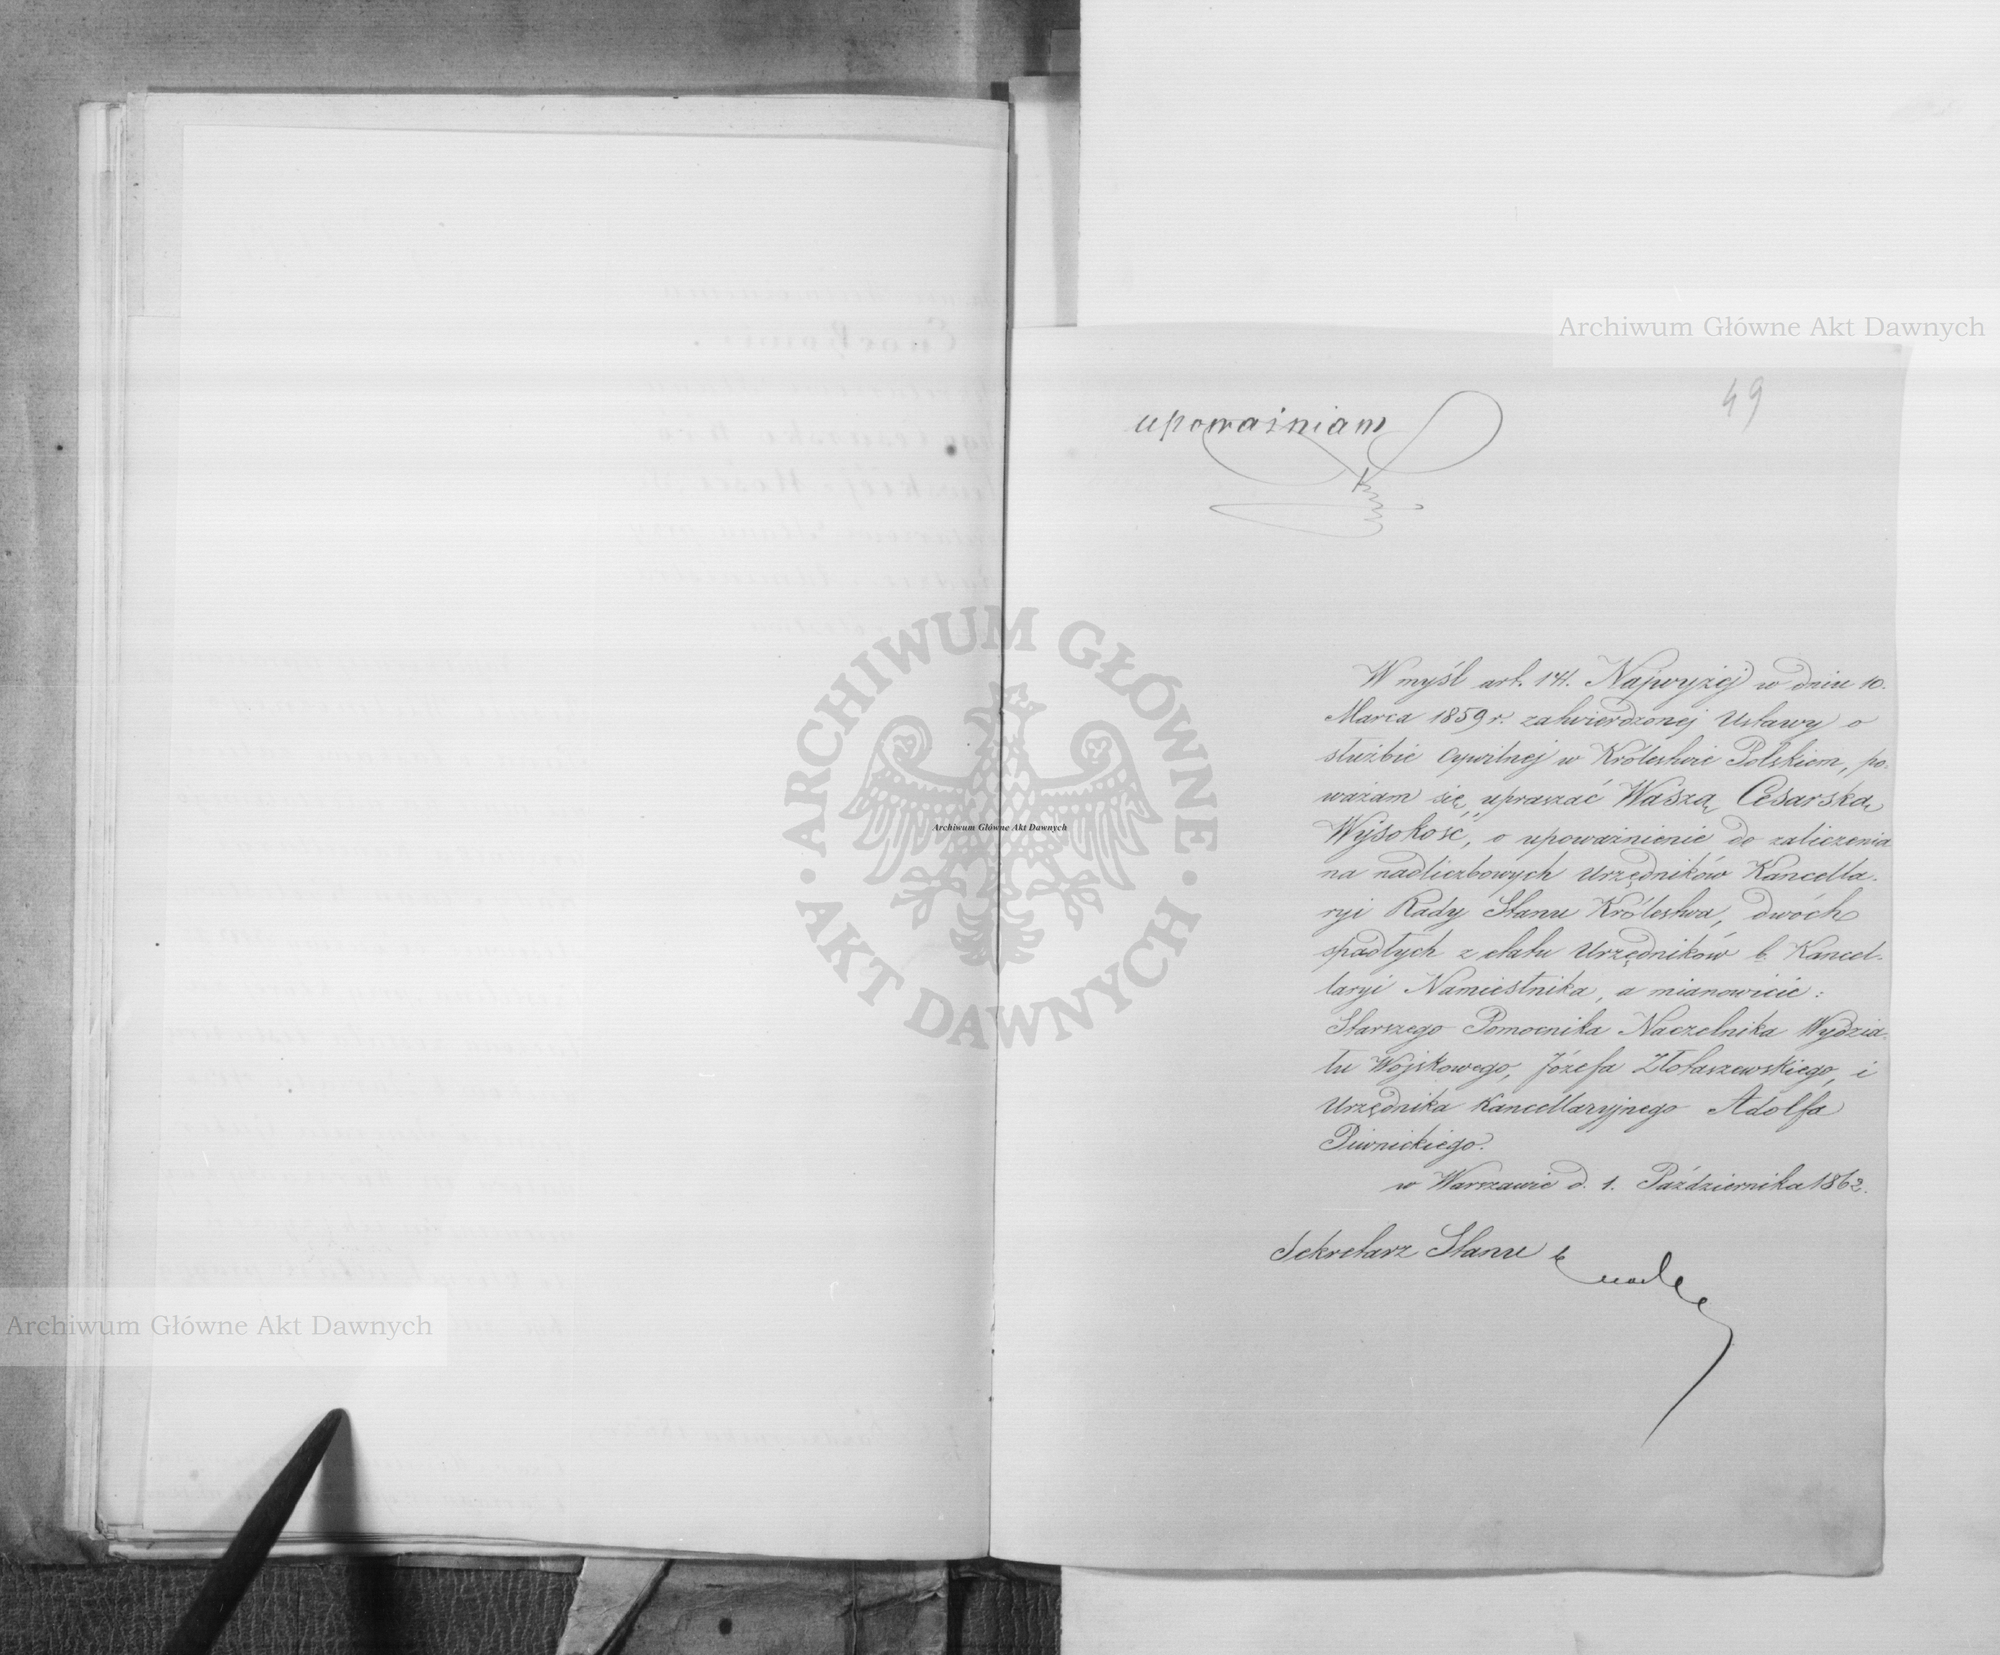 49
upoważniam
W myśl art. 141. Najwyżej w dniu 10.
Marca 1859 r. zatwierdzonej Ustawy o
służbie Cywilnej w Królestwie Polskiem, po-
ważam się, upraszać Waszą Cesarską
Wysokość, o upoważnienie do zaliczenia
na nadliczbowych Urzędników Kancella-
ryi Rady Stanu Królestwa, dwóch
spadłych z etatu Urzędników b. Kancel-
laryi Namiestnika, a mianowicie:
Starszego Pomocnika Naczelnika Wydzia-
łu Wojskowego, Józefa Złotaszewskiego, i
Urzędnika Kancellaryjnego Adolfa
Piwnickiego.
w Warszawie d. 1. Października 1862.
Sekretarz Stanu
Archiwum Główne Akt Dawnych
ARCHIWUM GŁÓWNE · AKT DAWNYCH ·
Archiwum Główne Akt Dawnych
Archiwum Główne Akt Dawnych